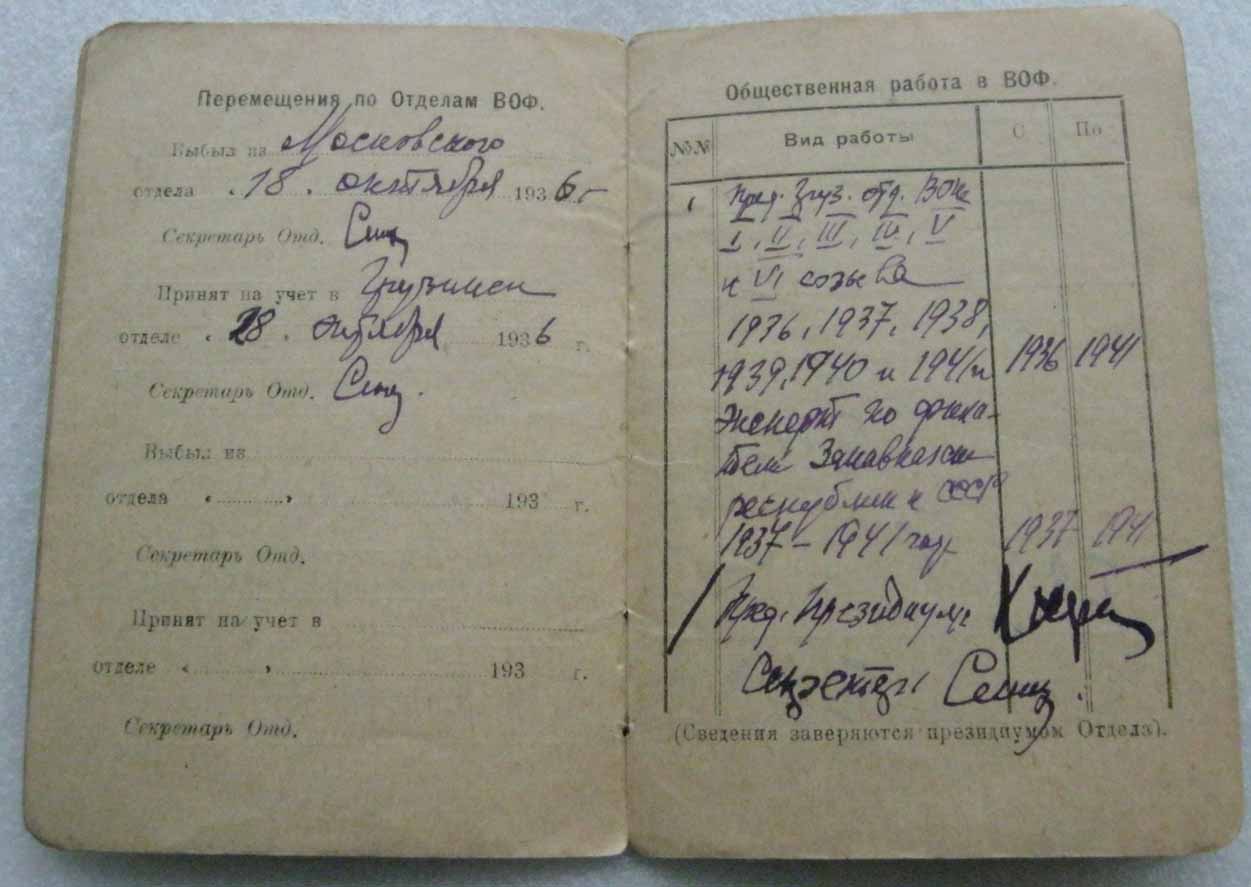 Перемещения по Отделам ВОФ.
Выбыл из Московского
отдела «18» октября 1936 г
Секретарь Отд.
Принят на учет в Грузинск
отделе «28» октября 1936 г.
Секретарь Отд.
Выбыл из
отдела « » 193 г.
Секретарь Отд.
Принят на учет в
отделе « » 193 г.
Секретарь Отд.
Общественная работа в ВОФ.
№№ Вид работы С По
1 Пред. Груз. отд. ВОФ
I, II, III, IV, V
и VI созыва
1936, 1937, 1938,
1939, 1940 и 1941 1936 1941
Эксперт по
Закавказск
республик СССР
1937–1941 году 1937 1941
Пред. Президиума
Секретарь
(Сведения заверяются президиумом Отдела).